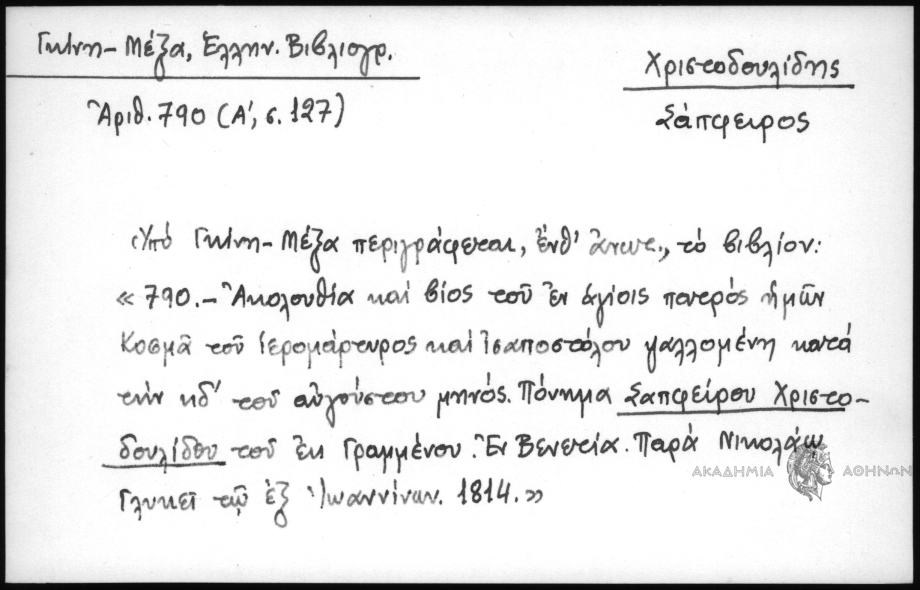 Γκίνη-Μέζα, Ἑλλην. Βιβλιογρ.
Ἀριθ. 790 (Α', σ. 127)
Χριστοδουλίδης
Σάπφειρος
Ὑπό Γκίνη-Μέζα περιγράφεται, ἔνθ' ἀνωτ., τό βιβλίον:
« 790.- Ἀκολουθία καί βίος τοῦ ἐν ἁγίοις πατρός ἡμῶν
Κοσμᾶ τοῦ ἱερομάρτυρος καί ἰσαποστόλου ψαλλομένη κατά
τήν κδ' τοῦ αὐγούστου μηνός. Πόνημα Σαπφείρου Χριστο-
δουλίδου τοῦ ἐκ Γραμμένου. Ἐν Βενετία. Παρά Νικολάῳ
Γλυκεῖ τῷ ἐξ Ἰωαννίνων. 1814.»
ΑΚΑΔΗΜΙΑ ΑΘΗΝΩΝ